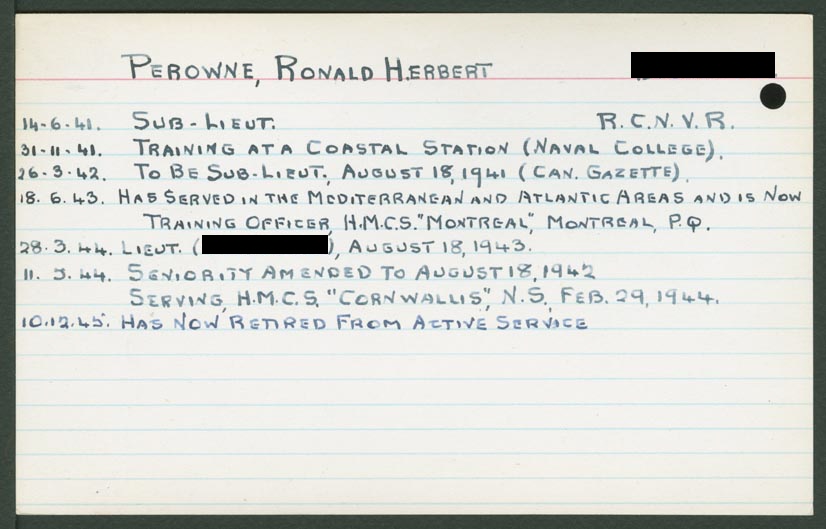 PEROWNE, RONALD HERBERT
14-6-41. SUB-LIEUT. R.C.N.V.R.
31-11-41. TRAINING AT A COASTAL STATION (NAVAL COLLEGE).
26-3-42. TO BE SUB-LIEUT., AUGUST 18, 1941 (CAN. GAZETTE).
18.6.43. HAS SERVED IN THE MEDITERRANEAN AND ATLANTIC AREAS AND IS NOW
TRAINING OFFICER, H.M.C.S. "MONTREAL", MONTREAL, P.Q.
28.3.44. LIEUT. ( ), AUGUST 18, 1943.
11.5.44. SENIORITY AMENDED TO AUGUST 18, 1942
SERVING, H.M.C.S. "CORNWALLIS", N.S., FEB. 29, 1944.
10.12.45. HAS NOW RETIRED FROM ACTIVE SERVICE